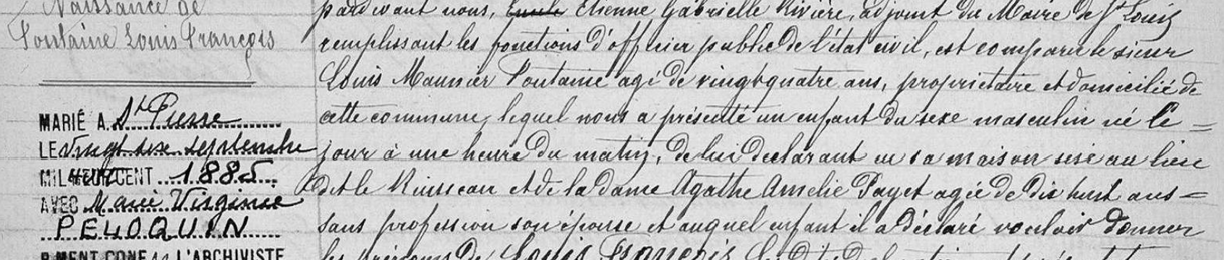 Naissance de
Fontaine Louis François
MARIÉ A St Pierre
LE vingt six septembre
MIL NEUF CENT 1885
AVEC Marie Virginie
PELOQUIN
MENT CONF À L'ARCHIVISTE
pardevant nous, Emile Etienne Gabrielle Rivière, adjoint du Maire de St Louis
remplissant les fonctions d'officier public de l'état civil, est comparu le sieur
Louis Maunier Fontaine agé de vingt quatre ans, propriétaire et domicilié de
cette commune, lequel nous a présenté un enfant du sexe masculin né le =
jour à une heure du matin, de lui déclarant en sa maison sise au lieu
dit le Ruisseau et de la dame Agathe Amélie Payet agée de dix huit ans =
sans profession son épouse et auquel enfant il a déclaré vouloir donner
les prénoms de Louis François